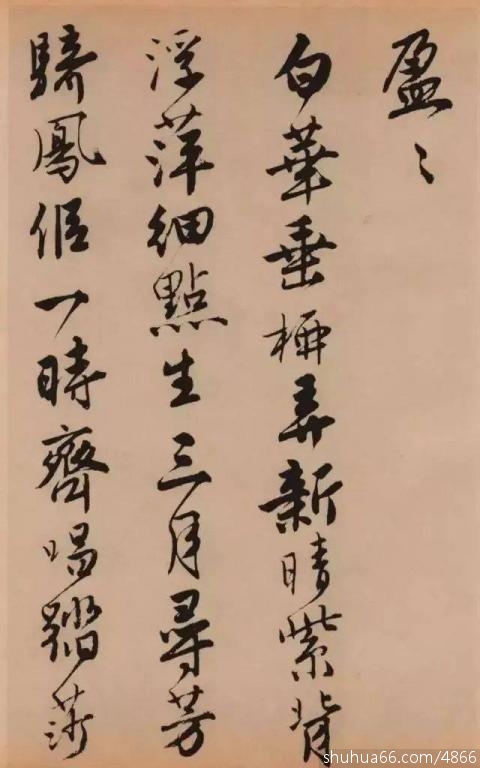 盈〻
白華垂弄新晴紫背
浮萍細點生三月尋芳
騎鳳侶一時齊唱踏莎
shuhua66.com/4866